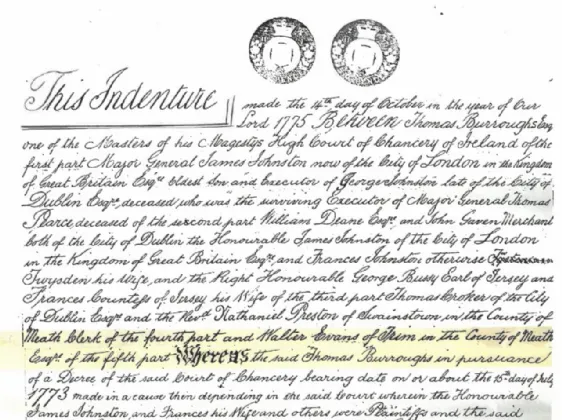 This Indenture made the 14th day of October in the year of Our
Lord 1775 Between Thomas Burroughs Esq
one of the Masters of his Magestys High Court of Chancery of Ireland of the
first part Major General James Johnston now of the City of London in the Kingdom
of Great Britain Esqr. Eldest Son and Executor of George Johnston late of the City of
Dublin Esqr. deceased, who was the surviving Executor of Major General Thomas
Pearce deceased of the second part William Deane Esqr. and John Gaven Merchant
both of the City of Dublin the Honourable James Johnston of the City of London
in the Kingdom of Great Britain Esqr. and Frances Johnston otherwise
Twysden his Wife, and the Right Honourable George Bussy Earl of Jersey and
Frances Countess of Jersey his Wife of the third part Thomas Croker of the City
of Dublin Esqr. and the Revd. Nathaniel Preston of Swainstown, in the County of
Meath Clerk of the fourth part and Walter Evans of in the County of Meath
Esqr. of the fifth part Whereas the said Thomas Burroughs in pursuance
of a Decree of the said Court of Chancery bearing date on or about the 15th day of July
1773 made in a cause then depending in the said Court wherein the Honourable
James Johnston and Frances his Wife and others were Plaintiffs and the said